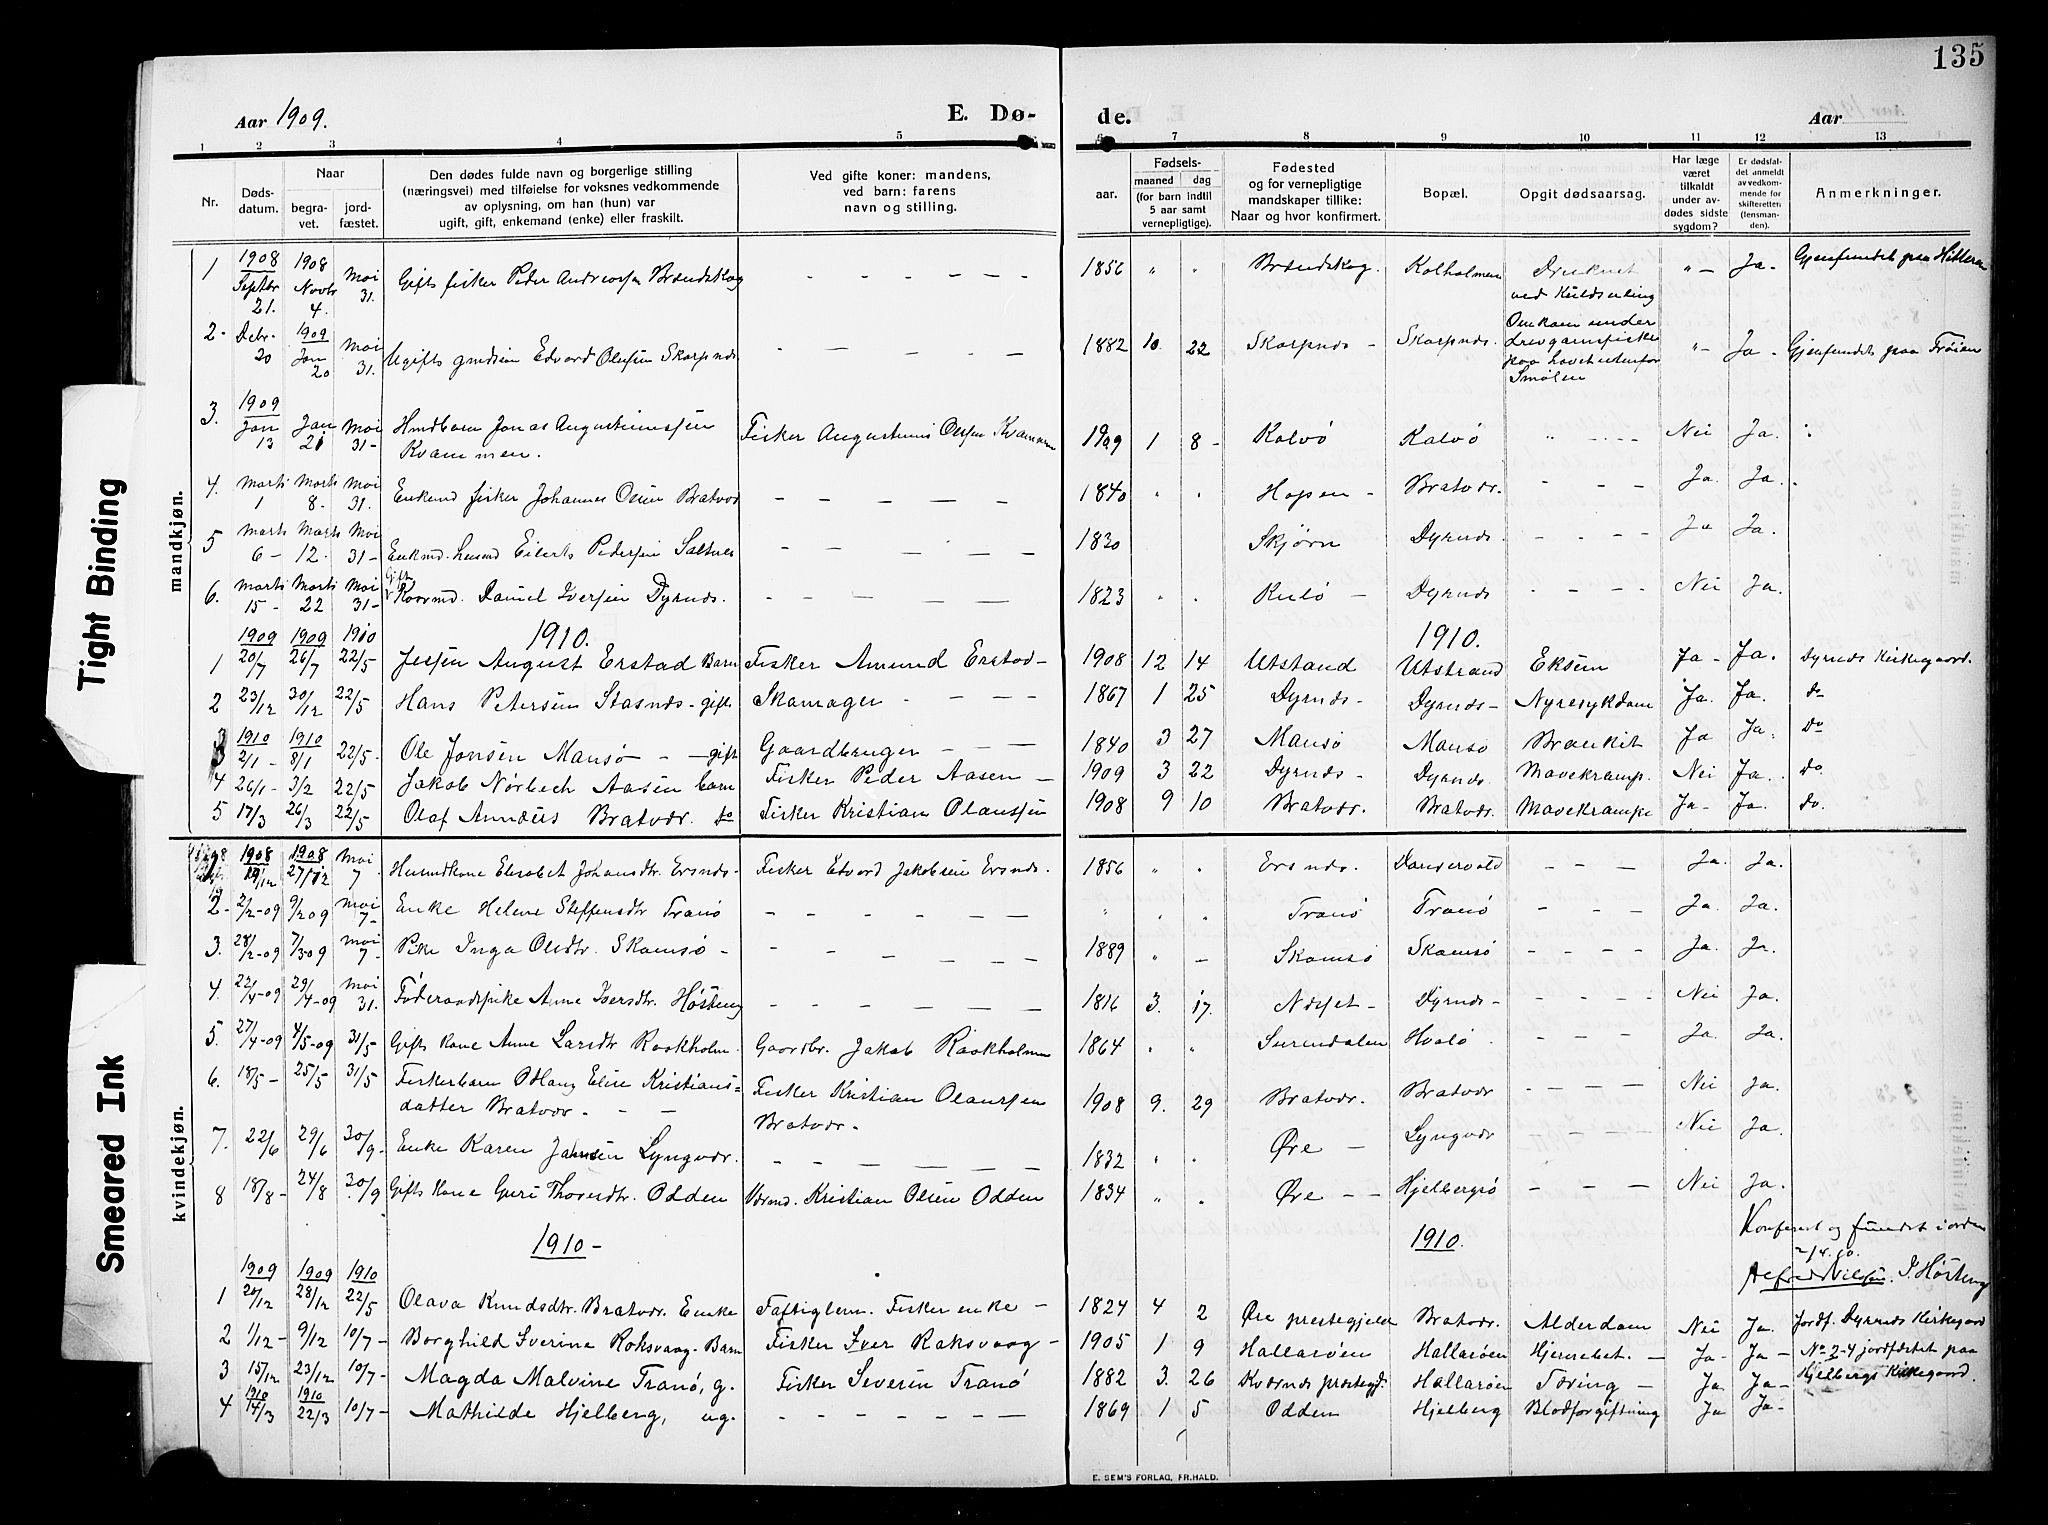 135
Aar 1909.
E. Dø-
de.
Aar
1 2 3 4 5 6 7 8 9 10 11 12 13
Nr.
Døds-
datum.
Naar
begra-
vet.
jord-
fæstet.
Den dødes fulde navn og borgerlige stilling
(næringsvei) med tilføielse for voksnes vedkommende
av oplysning, om han (hun) var
ugift, gift, enkemand (enke) eller fraskilt.
Ved gifte koner: mandens,
ved barn: farens
navn og stilling.
aar.
Fødsels-
maaned dag
(for barn indtil
5 aar samt
vernepligtige).
Fødested
og for vernepligtige
mandskaper tillike:
Naar og hvor konfirmert.
Bopæl.
Opgit dødsaarsag.
Har læge
været
tilkaldt
under av-
dødes sidste
sygdom?
Er dødsfal-
det anmeldt
av vedkom-
mende for
skifteretten
(lensman-
den).
Anmerkninger.
mandkjøn.
1 1908 Septbr 21. 1908 Novbr 4. Mai 31. Gift fisker Peder Andreassen Brændskog — — — — — 1856 " " Brændskog. Kalholmen Druknet ved Kuldseiling " — Ja. Gjenfundet paa Hitteren
2. Debr. 20 1909 Jan 20 Mai 31. Ugift gmdsøn Edvard Olufsen Skarpnds. — — — — 1882 10. 22 Skarpnds — Skarpnds. Omkom under drevgarnsfiske paa havet utenfor Smølen " — Ja — Gjenfundet paa Frøien
3. 1909 Jan 13 Jan 21 Mai 31 — Hmdbarn Jonas Augustinussen Kvammen. Fisker Augustinus Olsen Kvammen 1909 1 8 — Kalvø Kalvø " — — — Nei Ja.
4. Marts 1 Marts 8. Mai 31. Enkemd fisker Johannes Olsen Bratvær — — — — — 1840 " . Hopen — Bratvær. — — — Ja. Ja.
5 Marts 6 — Marts 12. Mai 31 — Enkmd. husmd Eilert Pedersen Saltnes — — — — — 1830 Skjørn Dyrnds. — — — — Ja Ja.
6. Marts 15 — Marts 22 Mai 31 — Gift Kaarmd. Daniel Iversen Dyrnds. — — — — — 1823 . . Kulø — Dyrnds — — — — Nei Ja.
1910. 1910.
1 1909 20/7 1909 26/7 1910 22/5 Jessen August Erstad Barn Fisker Amund Erstad — 1908 12 14 Utstand Utstrand Eksem Ja — Ja. Dyrnds Kirkegaard.
2 23/12 30/12 22/5 Hans Petersen Stasnds — gift Skomager — — — — 1867 1 25 Dyrnds — Dyrnds — Nyresykdom Ja. Ja. do
3 1910 2/1 — 1910 8/1 22/5 — Ole Jonsen Mansø — — gift Gaardbruger — — — 1840 3 27 Mansø Mansø Bronkit Ja Ja. Do
4 26/1 — 3/2 22/5 Jakob Nørbech Aasen barn Fisker Peder Aasen — 1909 3 22 Dyrnds — Dyrnds. Mavekramp. Nei Ja. do.
5 17/3 26/3 22/5 Olaf Annæus Bratvær. do Fisker Kristian Olaussen 1908 9 10 Bratvær. Bratvær. Mavekrampe Ja — Ja. do.
kvindekjøn.
1908 19/12 1908 27/12 Mai 7 Husmdkone Elisabet Johansdtr Ersnds — Fisker Edvard Jakobsen Ersnds. 1856 " . Ersnds. Dandervold — — — Ja. Ja.
2 — 2/2 — 09 9/2 09 Mai 7 — Enke Helene Steffensdtr Tranø — — — — — — " . . Tranø Tranø — — — Ja. Ja.
3. 28/2 — 09 7/3 — 09 Mai 7 — Pike Inga Olsdtr. Skamsø — — — — — — — 1889 " — Skamsø Skamsø — — — Ja. Ja.
4. 22/4 — 09 29/4 — 09 Mai 31. Føderaadspike Anne Iversdtr. Høsteng — — — — — — 1816 3. 17. Nesset — Dyrnds — — — — Nei Ja.
5. 27/4 — 09 4/5 — 09 31/5 Gift Kone Anne Larsdtr Raakholm. Gaardbr. Jakob Raakholmen 1864 . " Surendalen Hvalø . — — — Ja. Ja.
6. 18/5 — 25/5 31/5 Fiskerbarn Olianz Elise Kristians= datter Bratvær. — — Fisker Kristian Olaussen Bratvær. 1908 9. 29 Bratvær. Bratvær — — — Nei Ja.
7. 22/6 29/6 30/9. Enke Karen Jansen Lyngvær. — — — — — — 1832 . . Øre — Lyngvær — — — Nei Ja.
8 18/8 — 24/8 30/9 Gift Kone Guri Thoresdtr. Odden Vdrmd. Kristian Olsen Odden 1834 " . Øre — — Hjelbergsø — — — Nei Ja.
Konferert og fundet i orden
2/4.10.
Alfred Nilssen. I. Høsteng
1910 — 1910.
1 1909 20/12 1909 28/12 1910 22/5 Olava Knudsdtr. Bratvær. Enke Fattiglem. Fiskerenke — 1824 4 2 Øre prestegjeld Bratvær. Alderdom Nei Ja. Jordf. Dyrnds Kirkegaard
2 1/12 — 9/12 10/7 — Borghild Iverine Roksvaag — Barn Fisker Iver Roksvaag — 1905 1 9 Hallarøen Hallarøen Hjernebet. — Ja — Ja — No 2-4 jordfæstet paa Hjelbergs Kirkegaard.
3 15/12 23/12 10/7 — Magda Malvine Tranø, g. Fisker Severin Tranø 1882 3. 26 Kværnds prestegd. Hallarøen Tæring — Ja. Ja —
4 1910 14/3 1910 22/3 10/7 — Mathilde Hjelberg, ug. — — — — — — — 1869 1 5 Odden Hjelberg Blodforgiftning Ja Ja —
E. SEM'S FORLAG, FR.HALD.
Tight Binding
Smeared Ink